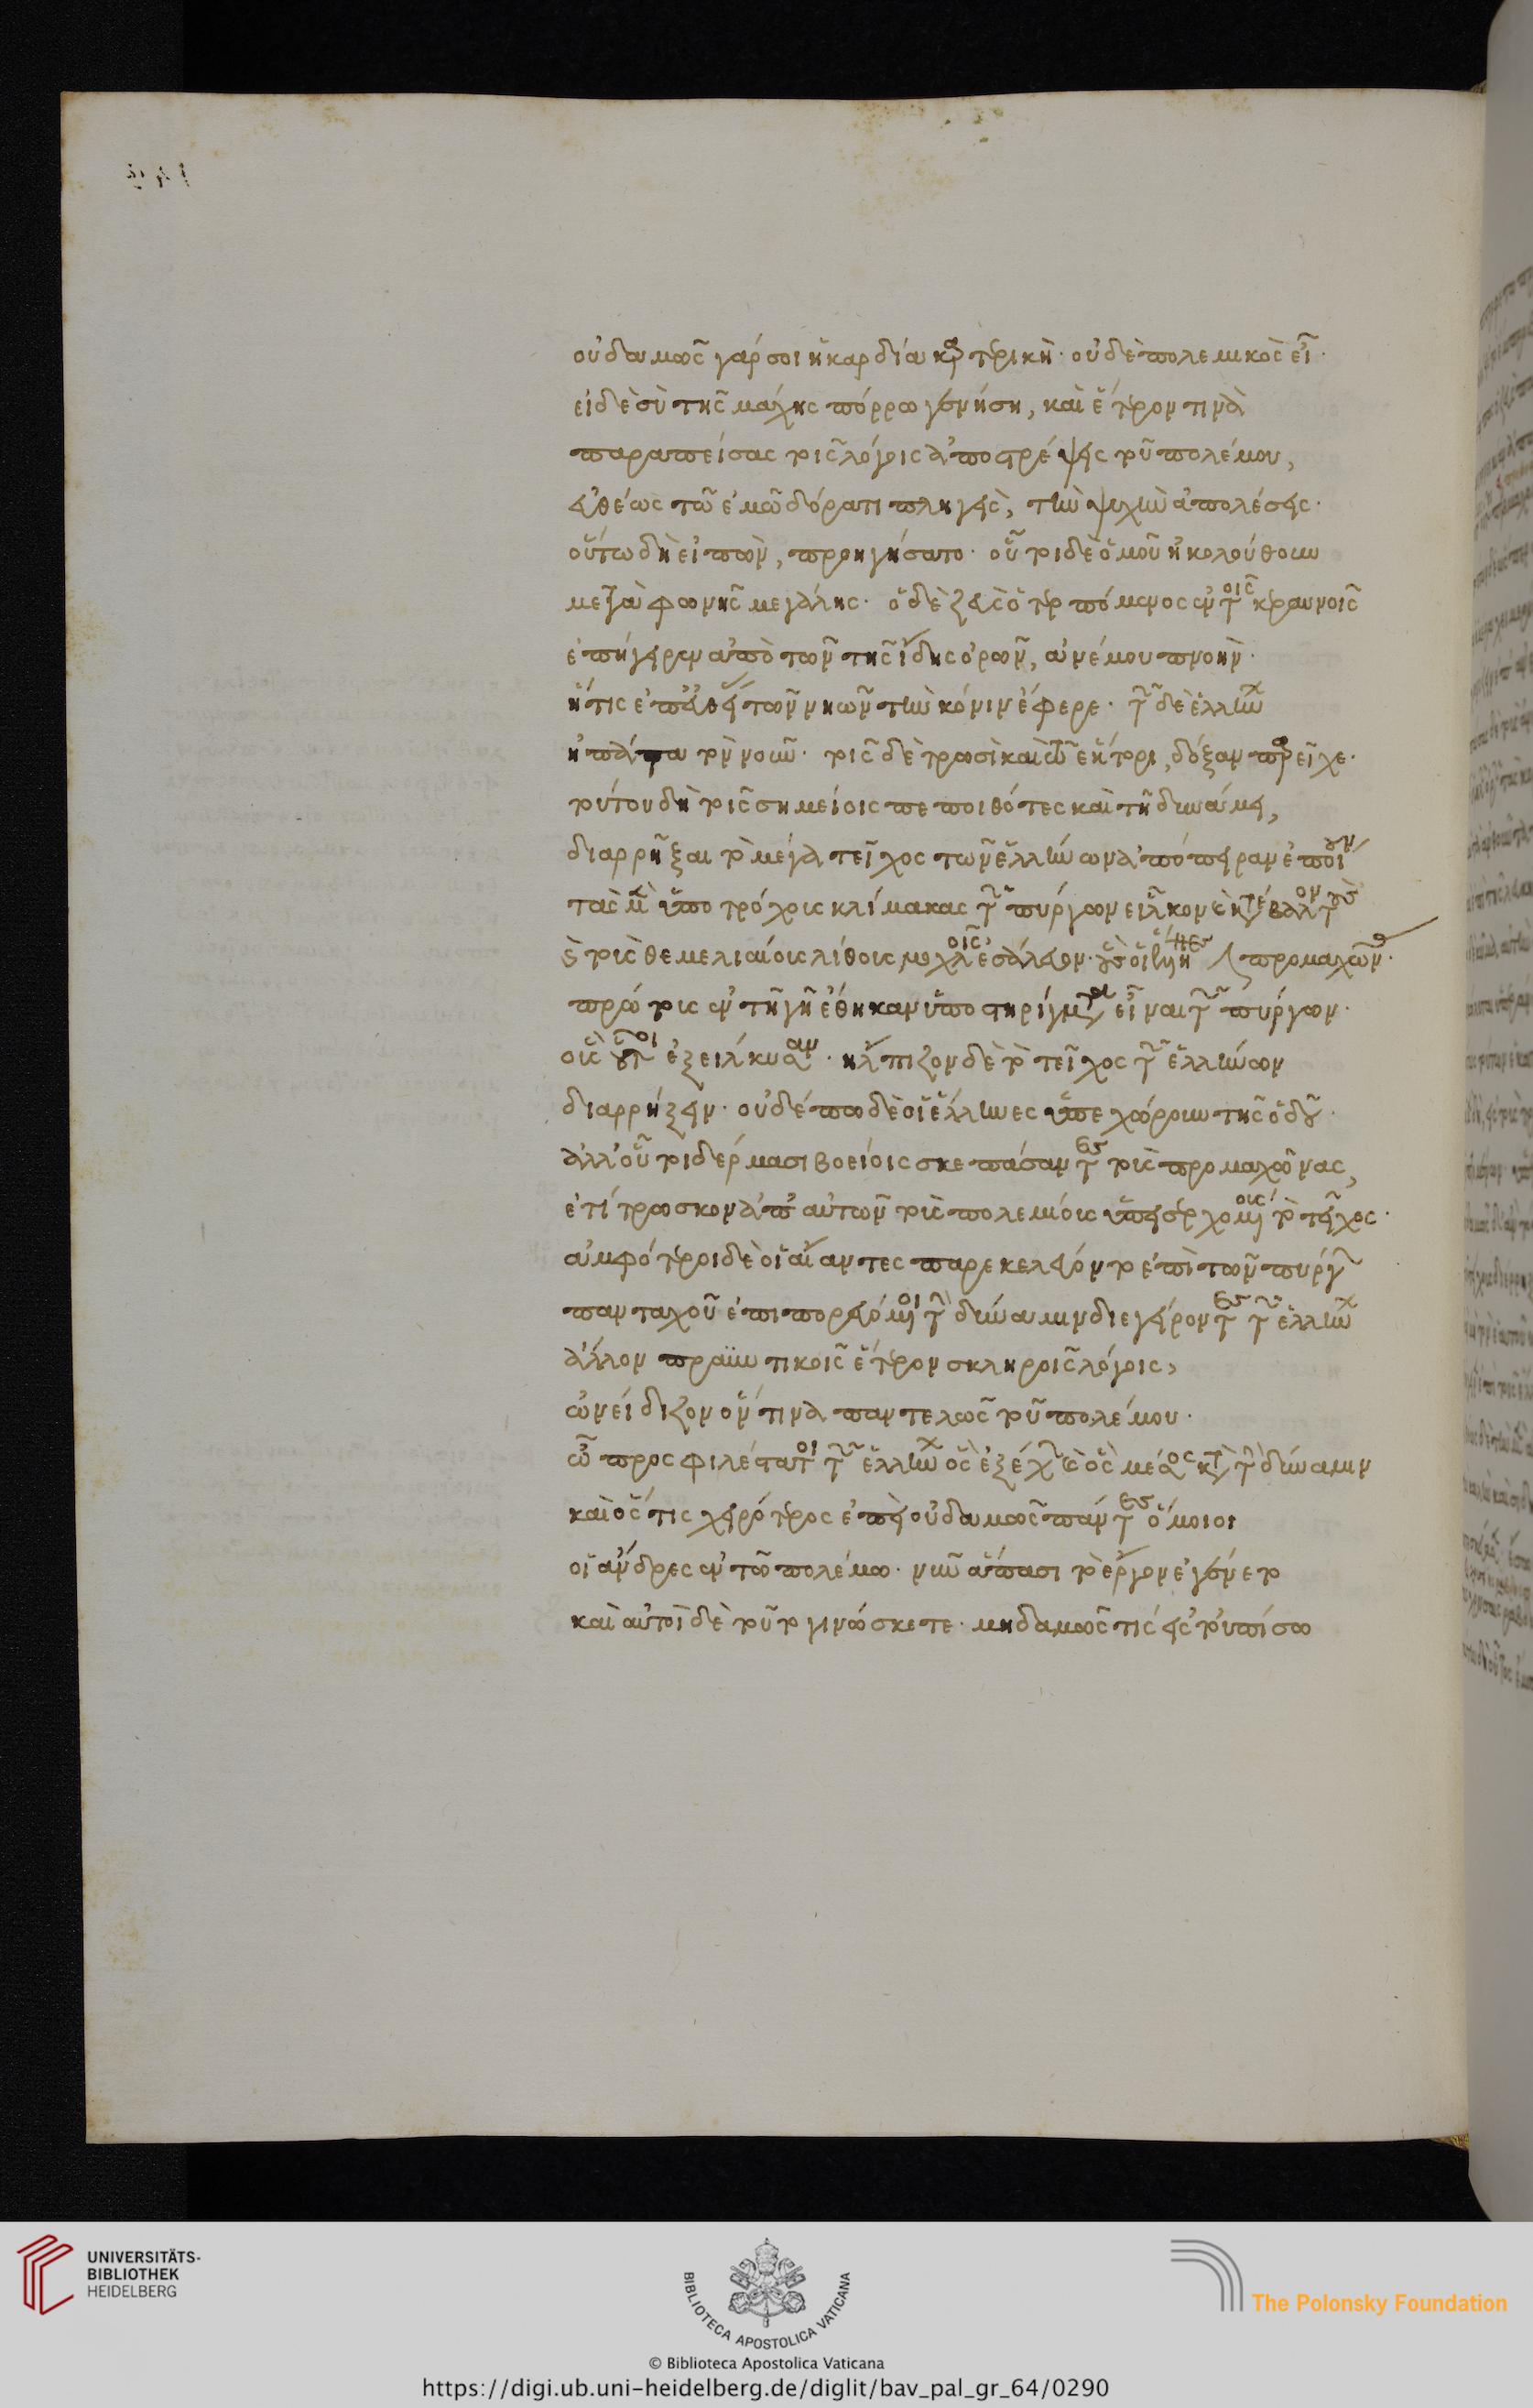 οὐδαμῶς γάρ σοι ἡ καρδία καρτερική· οὐδὲ πολεμικὸς εἶ·
εἰ δὲ σὺ τῆς μάχης πόρρω γενήσῃ, καὶ ἕτερόν τινα
παραπείσας τοῖς λόγοις ἀποστρέψεις τοῦ πολέμου,
εὐθέως τῶ ἐμῶ δόρατι πληγεὶς, τὴν ψυχὴν ἀπολέσεις·
οὕτω δὴ εἰπὼν, προηγήσατο· οὗτοι δὲ ὁμοῦ ἠκολούθουν
μετὰ φωνῆς μεγάλης· ὁ δὲ ζεὺς ὁ τερπόμενος ἐν τοῖς κεραυνοῖς
ἐπήγειρεν ἀπὸ τῶν τῆς ἴδης ὀρῶν, ἀνέμου πνοήν·
ἥτις ἐπ' εὐθεί τῶν νηῶν τὴν κόνιν ἔφερε· τῶν δὲ ἑλλήνων
ἠπάτα τὸν νοῦν· τοῖς δὲ τρωσὶ καὶ τῶ ἕκτορι, δόξαν παρεῖχε·
τούτου δὴ τοῖς σημείοις πεποιθότες καὶ τῆ δυνάμει,
διαρρῆξαι τὸ μέγα τεῖχος τῶν ἑλλήνων ἀπόπειραν ἐποίουν
τὰς μὲν ὑποτρόχους κλίμακας τῶν πύργων εἷλκον καὶ κατέβαλλον τοὺς
καὶ τοὺς θεμελιαίους λίθους μοχλοῖς ἐσάλευον· προμαχῶνας·
πρώτους ἐν τῆ γῆ ἔθηκαν ὑποστηρίγματα εἶναι τῶν πύργων·
οὓς οὗτοι ἐξείλκυσαν· ἤλπιζον δὲ τὸ τεῖχος τῶν ἑλλήνων
διαρρήξειν· οὐδέπω δὲ οἱ ἕλληνες ὑπεχώρουν τῆς ὁδοῦ·
ἀλλ' οὗτοι δέρμασι βοείοις σκεπάσαντες τοὺς προμαχῶνας,
ἐτίτρωσκον ἀπ' αὐτῶν τοὺς πολεμίους ὑπεισερχομένους τὸ τεῖχος·
ἀμφότεροι δὲ οἱ αἴαντες παρεκελεύοντο ἐπὶ τῶν πύργων
πανταχοῦ ἐπιπορευόμενοι τὴν δύναμιν διεγείροντες τῶν ἑλλήνων
ἄλλον πραϋντικοῖς ἕτερον σκληροῖς λόγοις,
ὠνείδιζον ὅντινα παντελῶς τοῦ πολέμου·
ὦ προσφιλέστατοι τῶν ἑλλήνων ὃς ἐξέχων καὶ ὃς μέσος κατὰ τὴν δύναμιν
καὶ ὅστις χειρότερος ἐπεὶ οὐδαμῶς πάντες ὅμοιοι
οἱ ἄνδρες ἐν τῶ πολέμω· νῦν ἅπασι τὸ ἔργον ἐγένετο
καὶ αὐτοὶ δὲ τοῦτο γινώσκετε· μηδαμῶς τίς εἰς τοὐπίσω
UNIVERSITÄTS-
BIBLIOTHEK
HEIDELBERG
BIBLIOTECA APOSTOLICA VATICANA
The Polonsky Foundation
© Biblioteca Apostolica Vaticana
https://digi.ub.uni-heidelberg.de/diglit/bav_pal_gr_64/0290